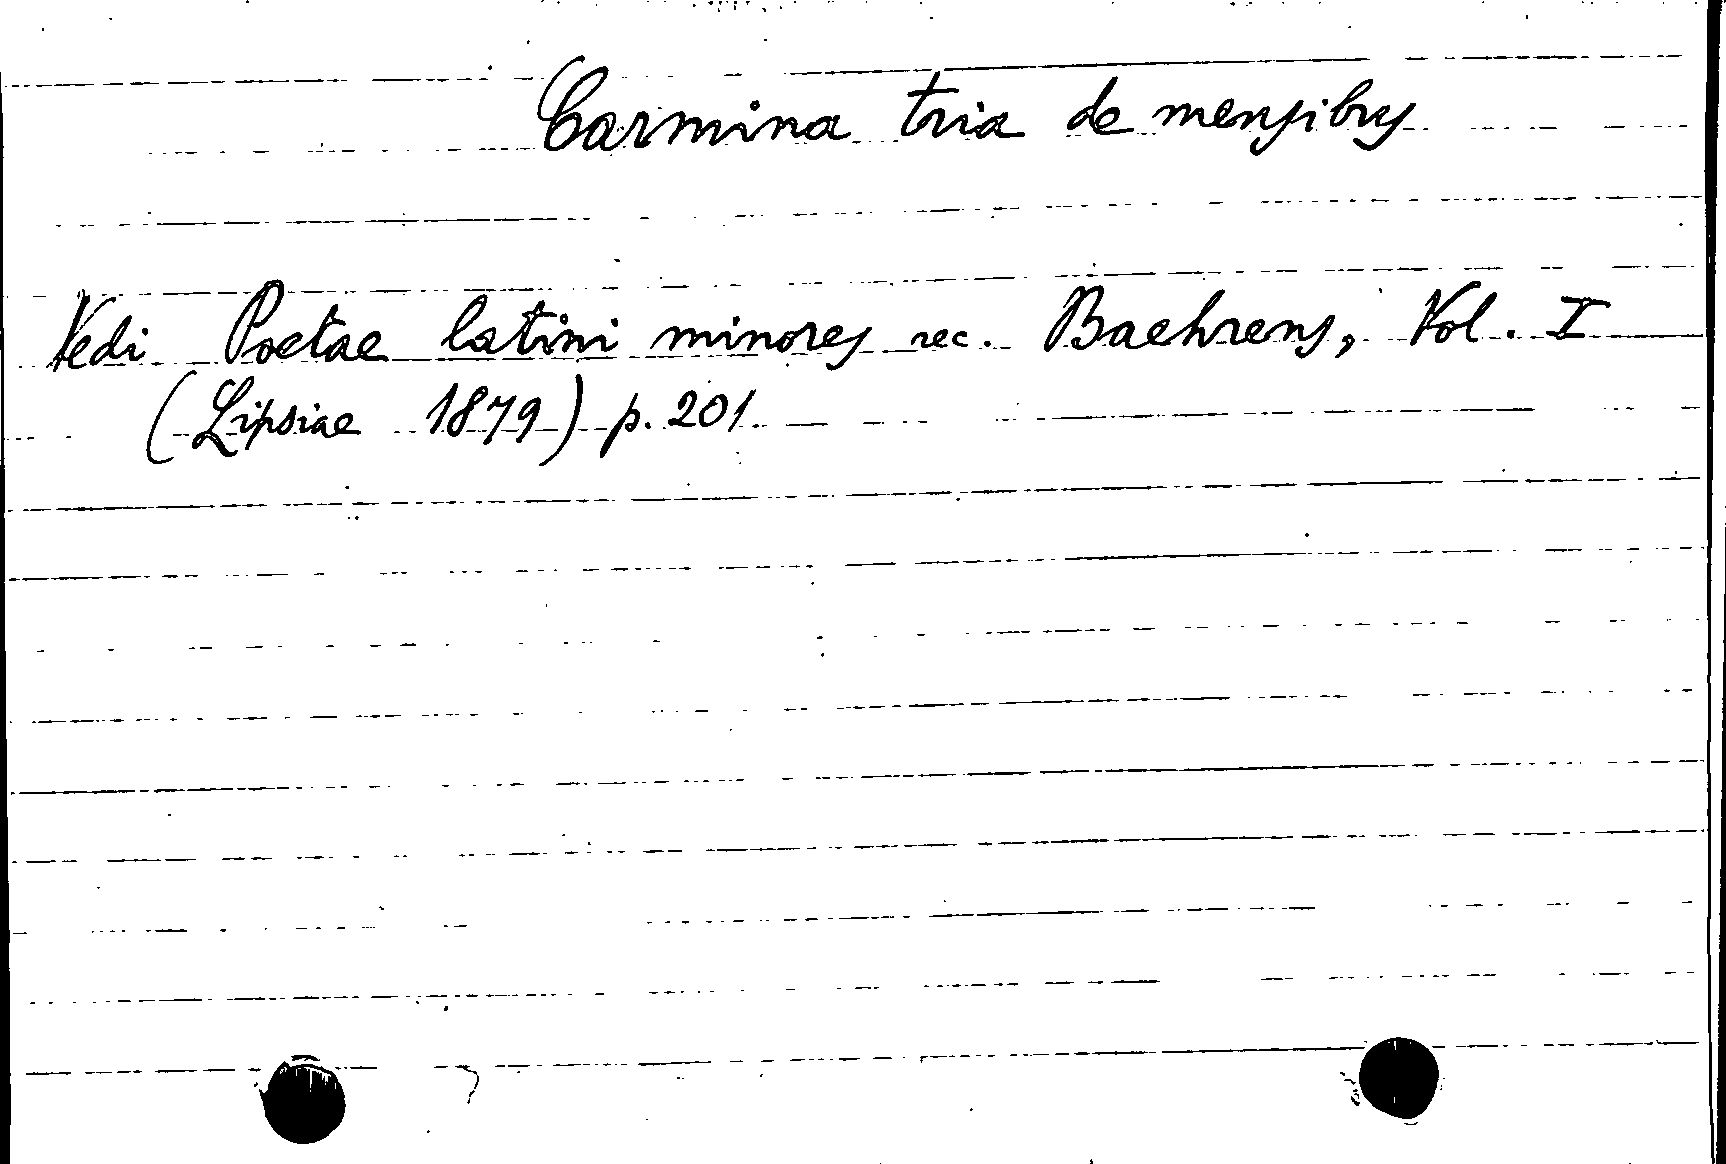 Carmina tria de mensibus
Vedi Poetae latini minores rec. Baehrens, Vol. I
(Lipsiae 1879) p. 201.